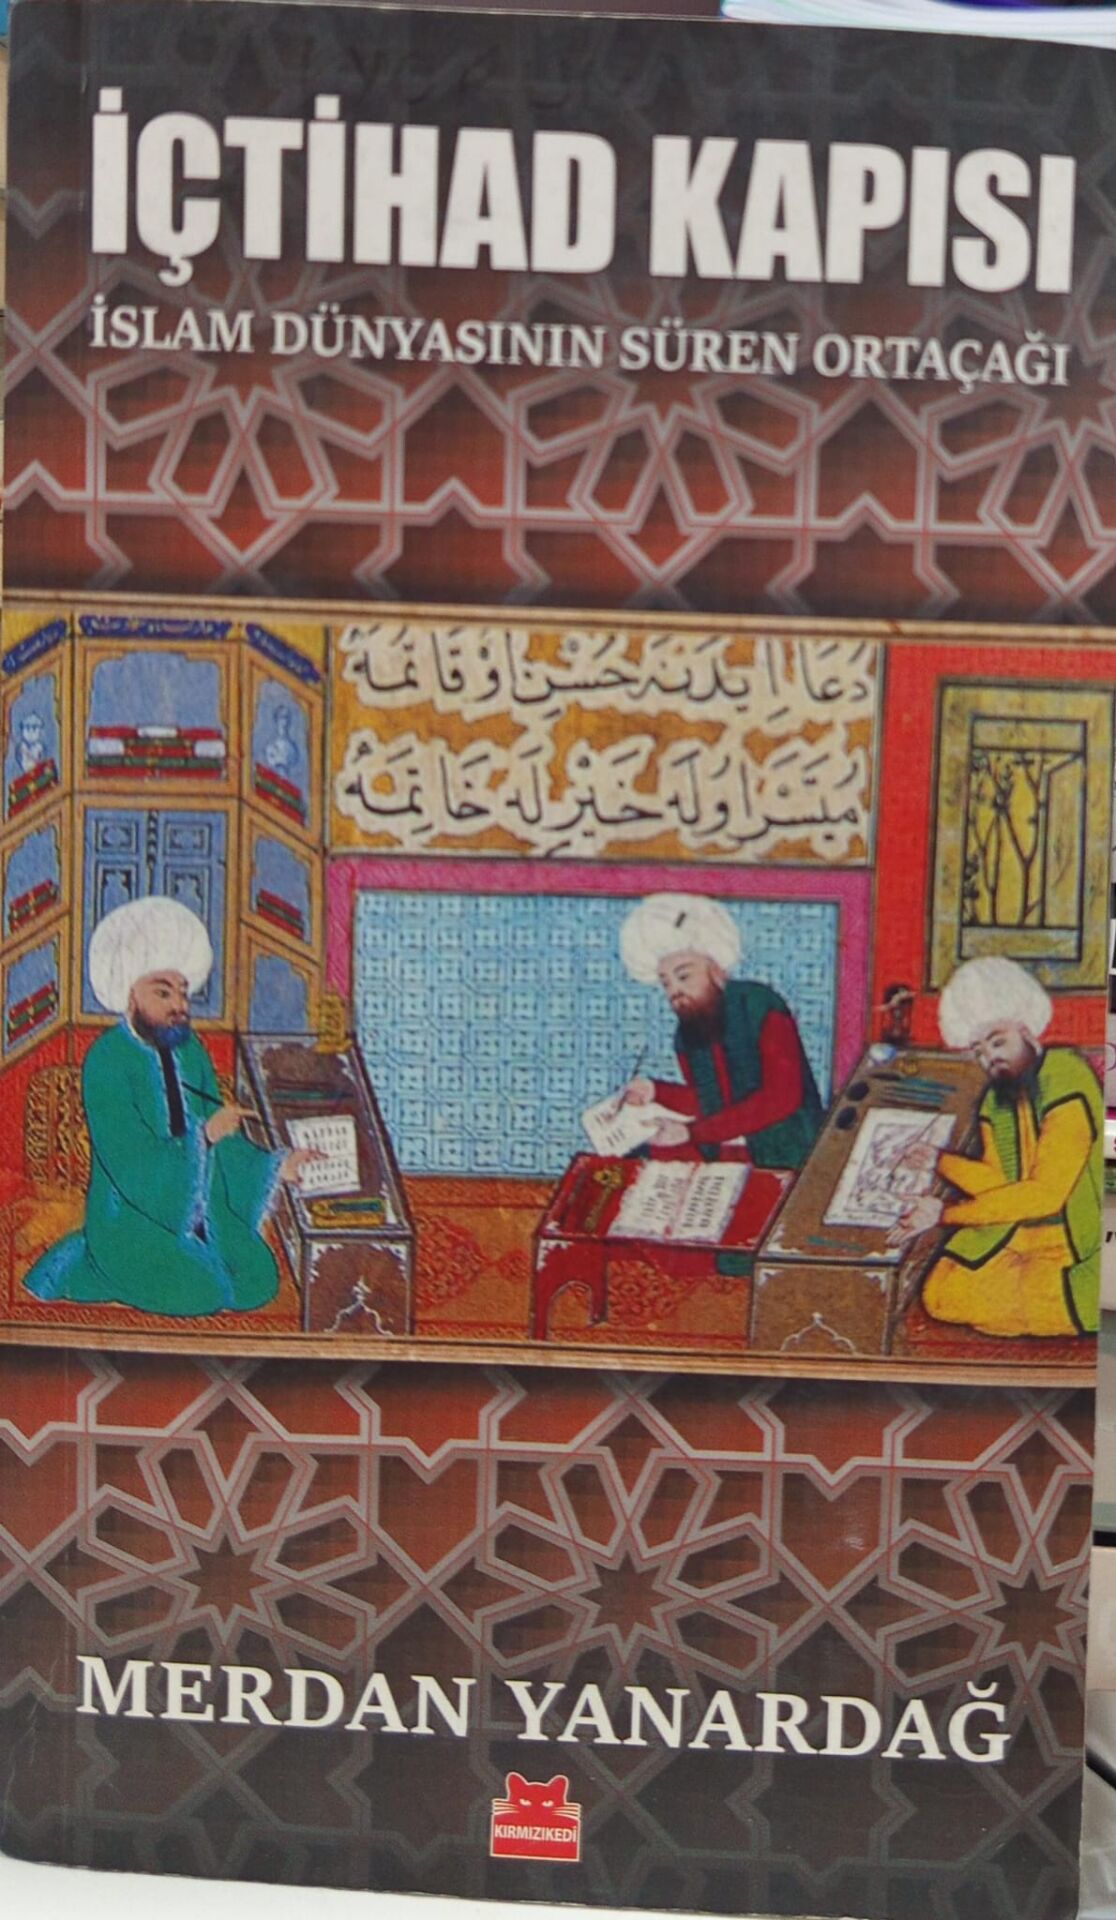 İÇTİHAD KAPISI
İSLAM DÜNYASININ SÜREN ORTAÇAĞI
دُعَا اِيدَنَهْ حُسْنِ اَوْقَاتِمَهْ
مُيَسَّرْ اَولَه خَيْرِلَه خَاتِمَهْ
MERDAN YANARDAĞ
KIRMIZIKEDİ